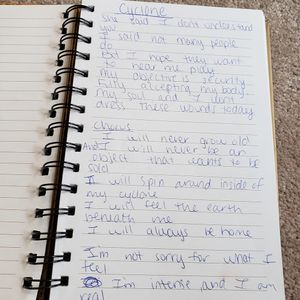 Cyclone
She said I don't understand
you
I said not many people
do
But I hope they want
to hear me play
My objective is security
Fully accepting my body
My soul and I don't
dress these wounds today
Chorus
I will never grow old
And I will never be an
object that wants to be
sold
I will spin around inside of
my cyclone
I will feel the earth
beneath me
I will always be home
I'm not sorry for what I
feel
I'm intense and I am
real